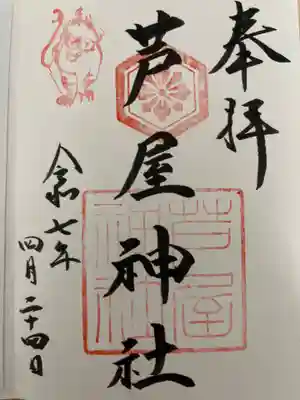 奉拝
芦屋神社
令和七年
四月二十四日
芦屋
神社